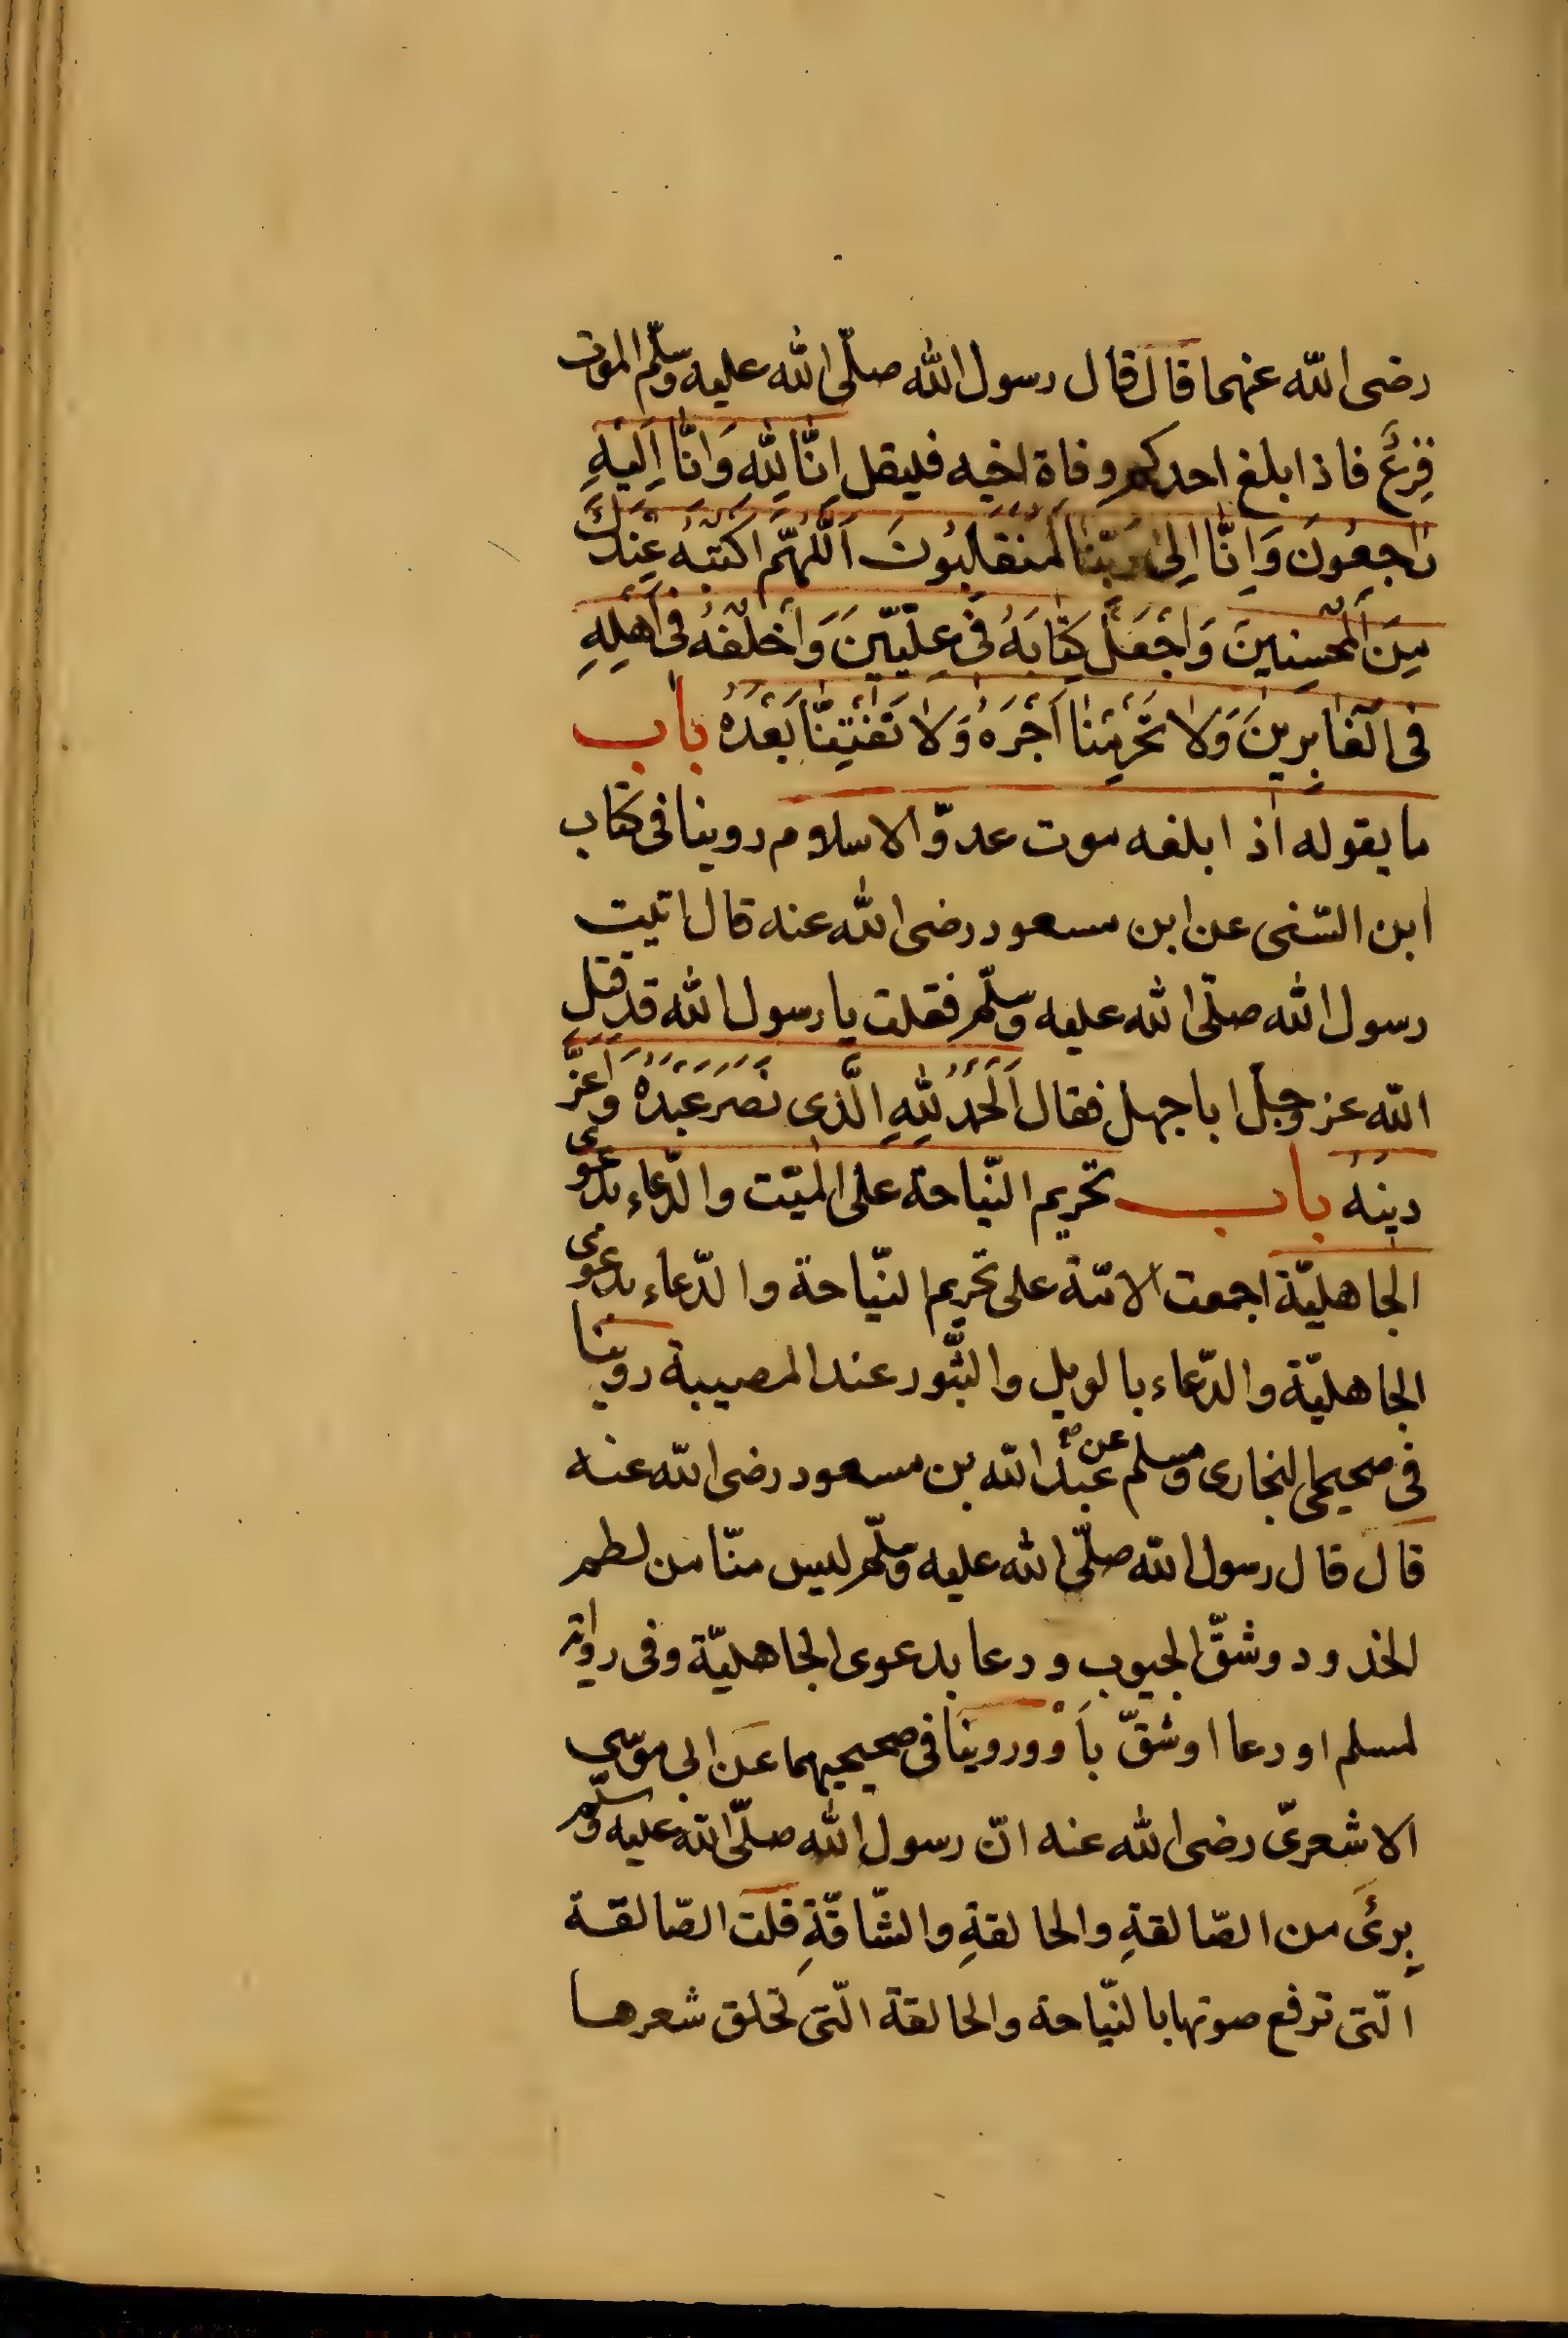 رضى الله عنهما قال قال رسول الله صلّى الله عليه وسلّم الموت
فزع فاذا بلغ احدكم وفاة اخيه فليقل اِنَّا لِلّٰهِ وَاِنَّا اِلَيْهِ
رَاجِعُونَ وَاِنَّا اِلٰى رَبِّنَا لَمُنْقَلِبُونَ اَللّٰهُمَّ اكْتُبْهُ عِنْدَكَ
مِنَ الْمُحْسِنِينَ وَاجْعَلْ كِتَابَهُ فِى عِلِّيِّينَ وَاخْلُفْهُ فِى اَهْلِهِ
فِى الْغَابِرِينَ وَلَا تَحْرِمْنَا اَجْرَهُ وَلَا تَفْتِنَّا بَعْدَهُ باب
ما يقوله اذا بلغه موت عدوّ الاسلام روينا فى كتاب
ابن السّنى عن ابن مسعود رضى الله عنه قال اتيت
رسول الله صلّى الله عليه وسلّم فقلت يا رسول الله قد قتل
الله عز وجلّ ابا جهل فقال اَلْحَمْدُ لِلّٰهِ الَّذِى نَصَرَ عَبْدَهُ وَاَعَزَّ
دِينَهُ باب تحريم النّياحة على الميّت والدّعاء بدعوى
الجاهليّة اجمعت الامّة على تحريم النّياحة والدّعاء بدعوى
الجاهليّة والدّعاء بالويل والثّبور عند المصيبة روينا
فى صحيحى البخارى ومسلم عن عبد الله بن مسعود رضى الله عنه
قال قال رسول الله صلّى الله عليه وسلّم ليس منّا من لطم
الخدود وشقّ الجيوب ودعا بدعوى الجاهليّة وفى رواية
لمسلم او دعا او شقّ بِاَوْ وروينا فى صحيحيهما عن ابى موسى
الاشعرىّ رضى الله عنه انّ رسول الله صلّى الله عليه وسلّم
بِرئَ من الصّالقةِ والحالقةِ والشّاقّةِ قلت الصّالقة
الّتى ترفع صوتها بالنّياحة والحالقة الّتى تحلق شعرها